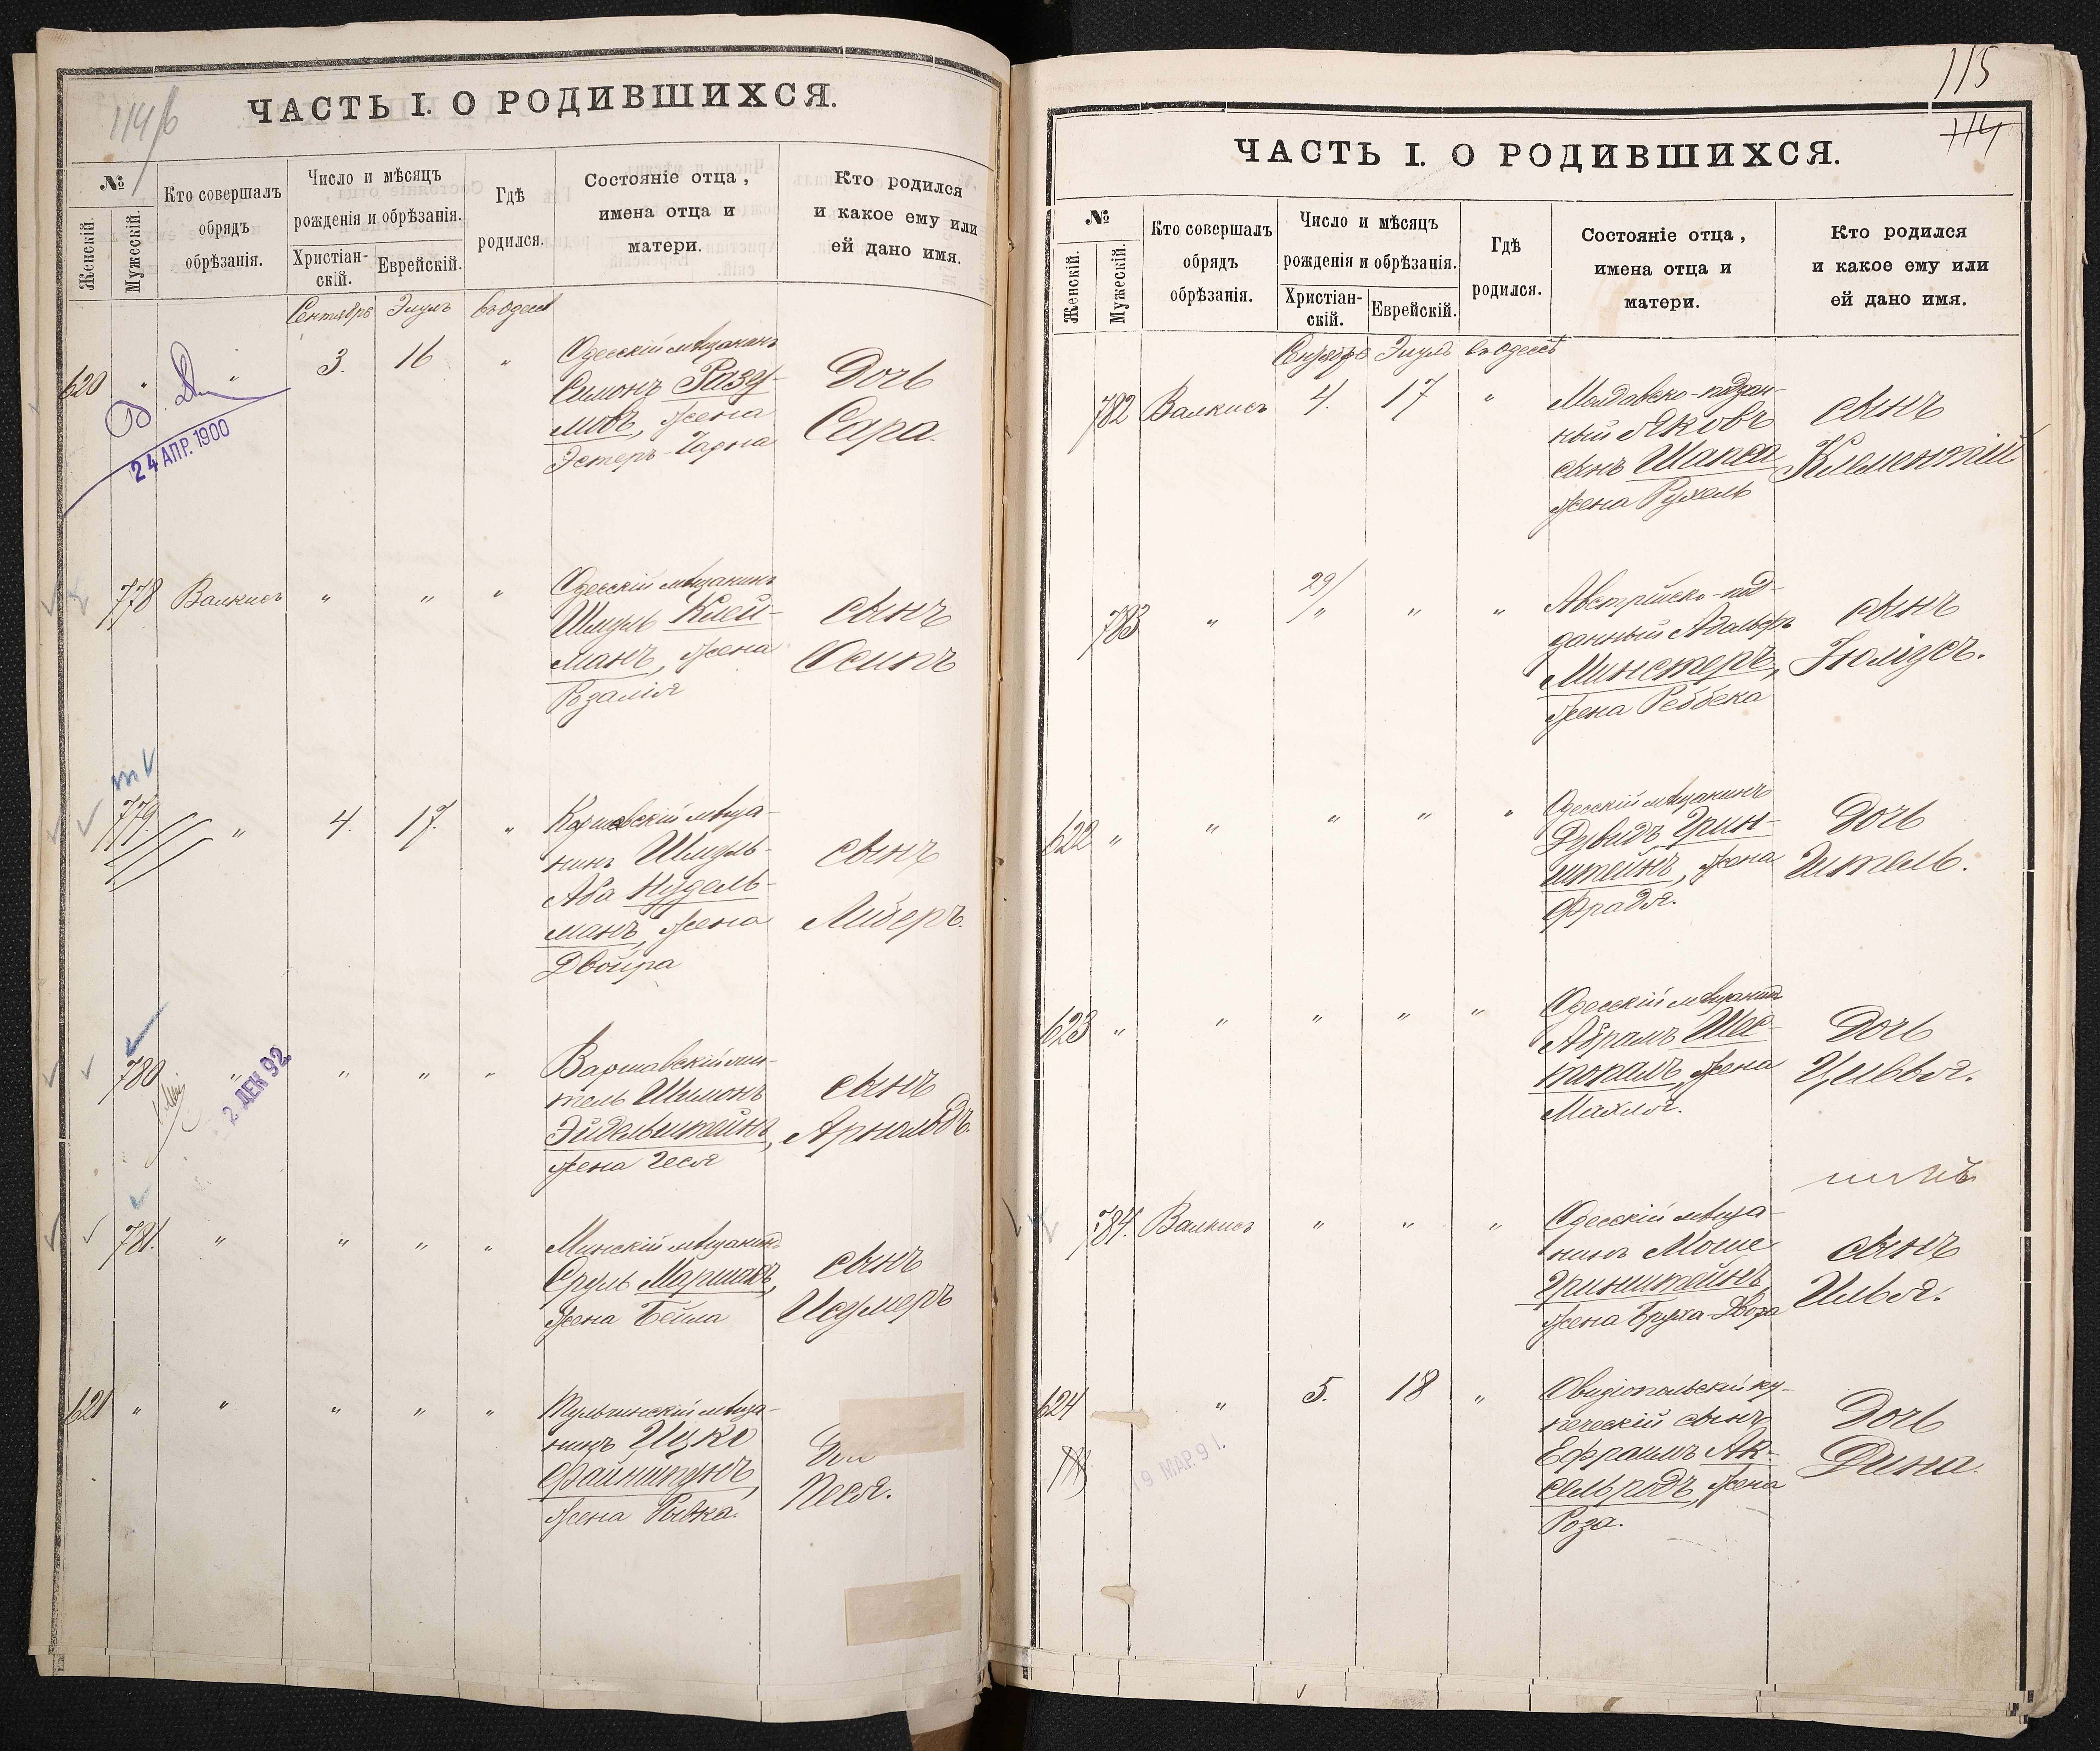 114/б
ЧАСТЬ I. О РОДИВШИХСЯ.
№
Женскій.
Мужескій.
Кто совершалъ
обрядъ
обрѣзанія.
Число и мѣсяцъ
рожденія и обрѣзанія.
Христіан-
скій.
Еврейскій.
Гдѣ
родился.
Состояніе отца,
имена отца и
матери.
Кто родился
и какое ему или
ей дано имя.
Сентябрь Элулъ въ Одессѣ
620 " " 3. 16 "
Одесскій мѣщанинъ
Симонъ Разу-
мовъ, жена
Эстеръ-
Дочь
Сара.
24 АПР. 1900
778 Валкисъ " " "
Одесскій мѣщанинъ
Шмуль Клей-
манъ, жена
Розалія
сынъ
Осипъ
779. " 4. 17. "
мѣща-
нинъ Шмуль-
Аба Нудель-
манъ, жена
Двойра
сынъ
Либеръ.
780 " " " "
Варшавскій жи-
тель Шимонъ
Эйдельштейнъ,
жена Геся
сынъ
Арнольдъ.
2 ДЕК 92
781. " " " "
Минскій мѣщанинъ
Сруль Маршакъ,
жена Бейла
сынъ
Исумеръ
621 " " " " "
Тульчинскій мѣща-
нинъ Ицко
Файнштейнъ,
жена Рывка.
Доч
Песя.
115
114
ЧАСТЬ I. О РОДИВШИХСЯ.
№
Женскій.
Мужескій.
Кто совершалъ
обрядъ
обрѣзанія.
Число и мѣсяцъ
рожденія и обрѣзанія.
Христіан-
скій.
Еврейскій.
Гдѣ
родился.
Состояніе отца,
имена отца и
матери.
Кто родился
и какое ему или
ей дано имя.
Сентябрь Элулъ въ Одессѣ
782 Валкисъ 4. 17 "
Молдавско-поддан-
ный Яковъ
сынъ Шапса
жена Рухель
сынъ
Клементій
783 " 29/" " "
Австрійско-под-
данный Адольфъ
Минстеръ,
жена Реббека
сынъ
Юліусъ.
622 " " " " "
Одесскій мѣщанинъ
Дувидъ Грин-
штейнъ, жена
Фрадя.
Дочь
Итель.
623 " " " " "
Одесскій мѣщанинъ
Абрамъ Шес-
топалъ, жена
Махля.
Дочь
Цивья.
784. Валкисъ " " "
Одесскій мѣща-
нинъ Моше
Гринштейнъ,
жена Бруха-Двора
сынъ
Илья.
624 " 5. 18 "
Овидіопольскій ку-
печескій сынъ
Ефраимъ Ак-
сельродъ, жена
Роза.
Дочь
Дина.
19 МАР. 91.